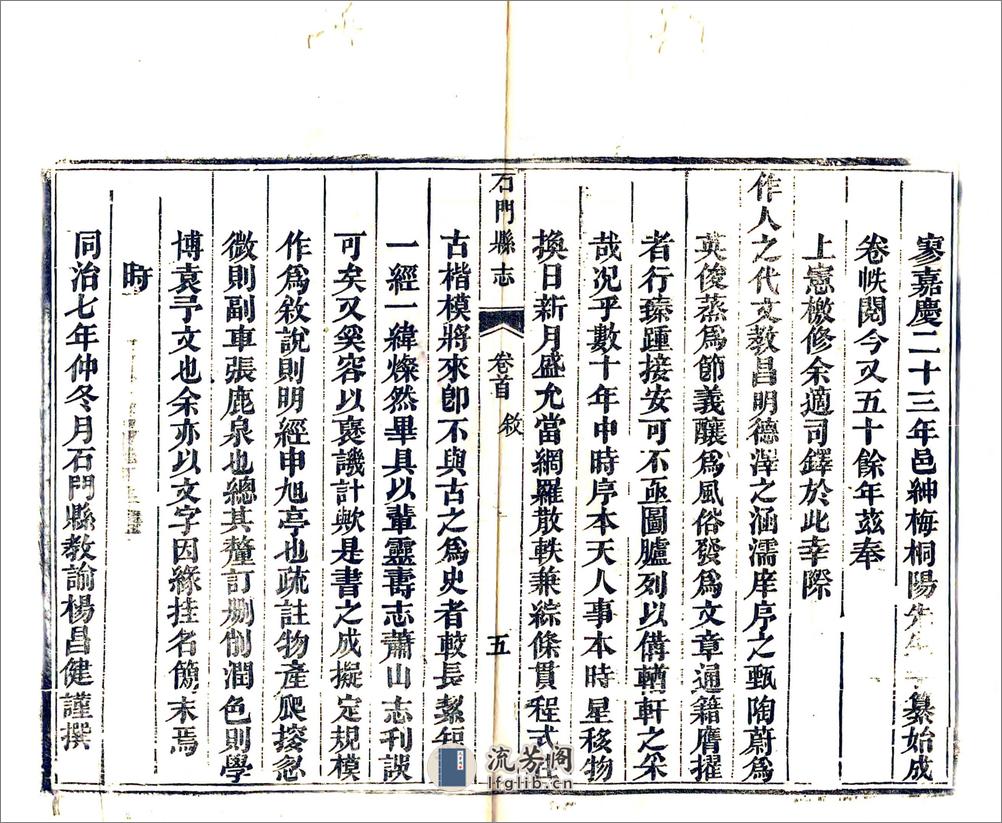 寥嘉慶二十三年邑紳梅桐陽先纂始成
卷帙閱今又五十餘年茲奉
上憲檄修余適司鐸於此幸際
作人之代文教昌明德澤之涵濡庠序之甄陶蔚為
英俊蒸為節義釀為風俗發為文章通籍膺擢
者行臻踵接安可不亟圖臚列以備輶軒之采
哉況乎數十年中時序本天人事本時星移物
換日新月盛允當網羅散軼兼綜條貫程式
石門縣志 卷首 敘 五
古楷模將來卽不與古之為史者較長絜短
一經一緯燦然畢具以輩靈壽志蕭山志刊誤
可矣又奚容以褒譏計歟是書之成擬定規模
作為敘說則明經申旭亭也疏註物產爬搜忽
微則副車張鹿泉也總其釐訂刪削潤色則學
博袁予文也余亦以文字因緣挂名簡末焉
時
同治七年仲冬月石門縣教諭楊昌健謹撰
流芳閣
lfglib.cn